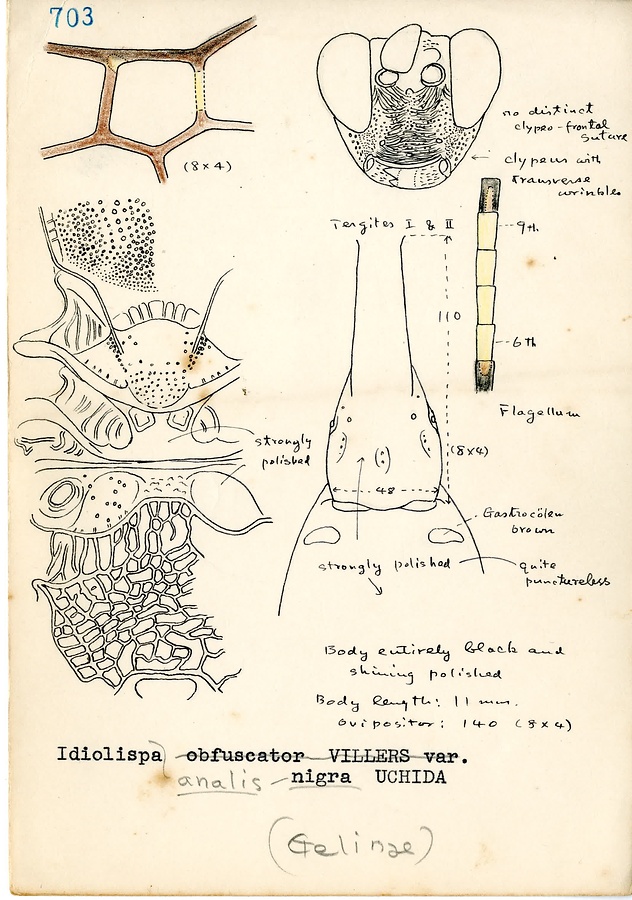 703
(8×4)
no distinct
clypeo-frontal
suture
clypeus with
transverse
wrinkles
Tergites I & II
9th
110
6th
Flagellum
strongly
polished
(8×4)
48
Gastrocölen
brown
strongly polished
quite
punctureless
Body entirely black and
shining polished
Body length: 11 mm.
Ovipositor: 140 (8×4)
Idiolispa obfuscator VILLERS var.
analis nigra UCHIDA
(Gelinae)